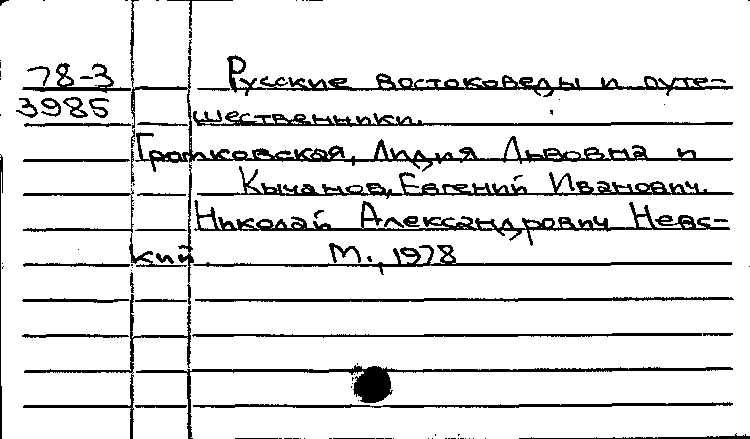 78-3 Русские востоковеды и путе-
3985 шественники.
Громковская, Лидия Львовна и
Кычанов, Евгений Иванович.
Николай Александрович Невс-
кий. М., 1978